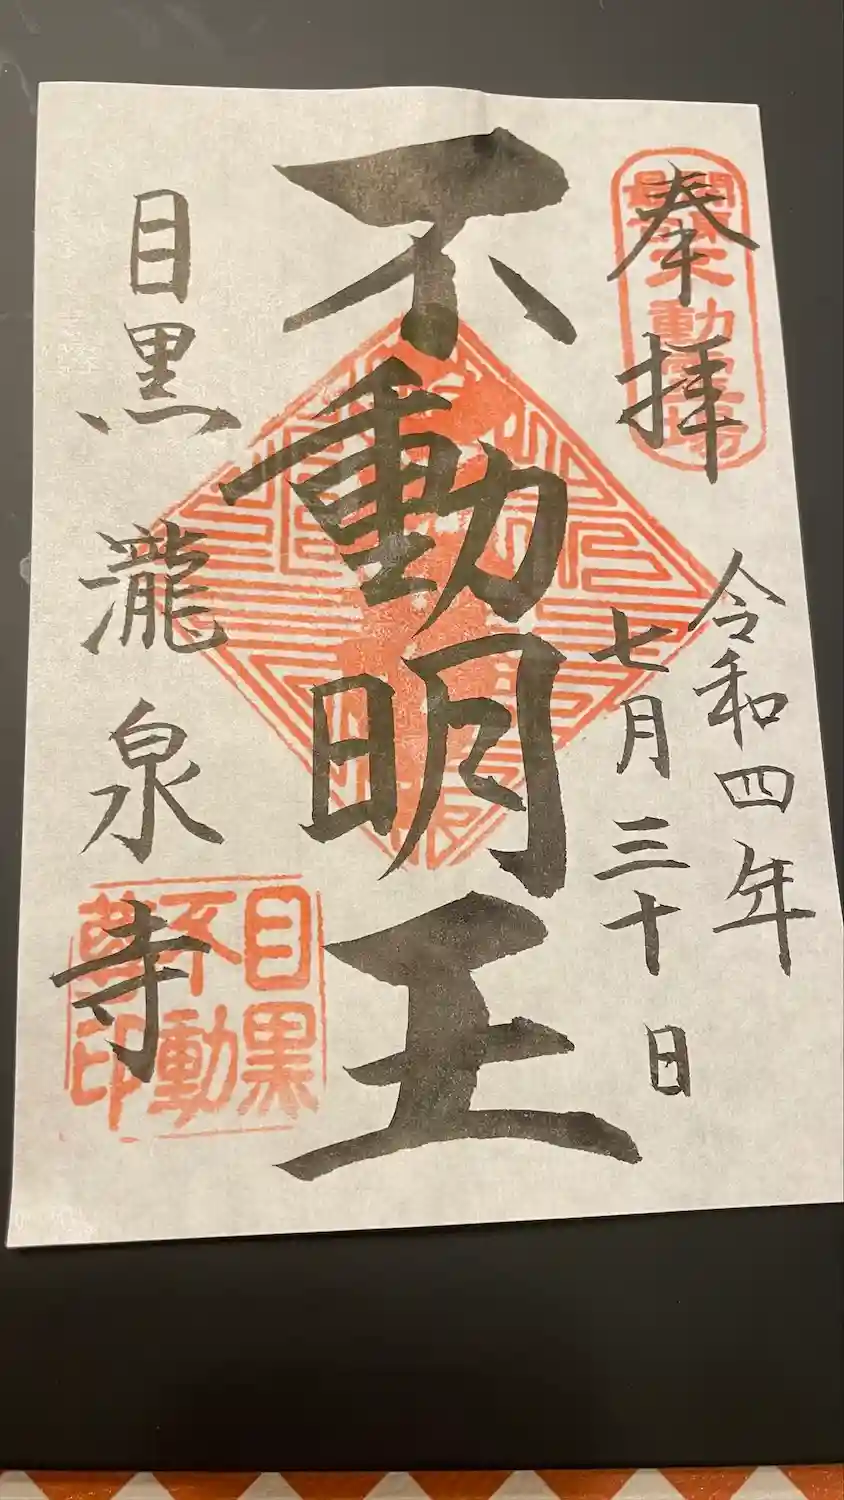 奉拝
令和四年
七月三十日
不動明王
目黒瀧泉寺
目黒
不動
尊印